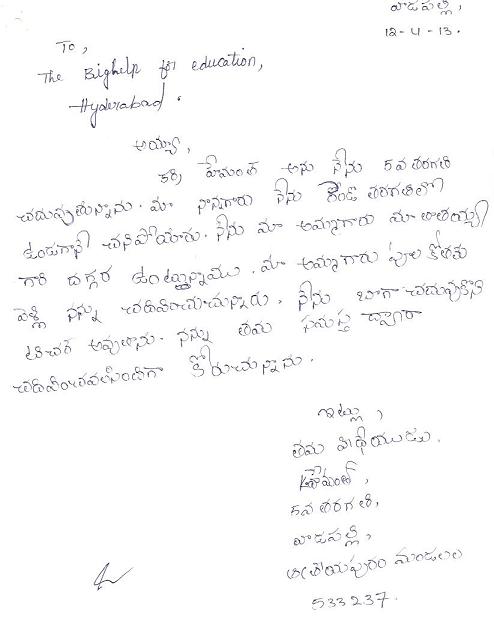 వాడపల్లి,
12-4-13.
To,
The Bighelp for education,
Hyderabad.
అయ్యా,
హేమంత అను నేను 5వ తరగతి
చదువుతున్నాను. మా నాన్నగారు నేను రెండో తరగతిలో
ఉండగానే చనిపోయారు. నేను మా అమ్మగారు మా తాతయ్య
గారి దగ్గర ఉంటున్నాము. మా అమ్మగారు పూల కోతకు
వెళ్లి నన్ను చదివించుచున్నారు. నేను బాగా చదువుకొని
టీచర్ అవుతాను. నన్ను తమ సమస్త ద్వారా
చదివించవలసిందిగా కోరుచున్నాను.
ఇట్లు,
తమ విధేయుడు.
5వ తరగతి,
వాడపల్లి,
ఆత్రేయపురం మండలం
533237.